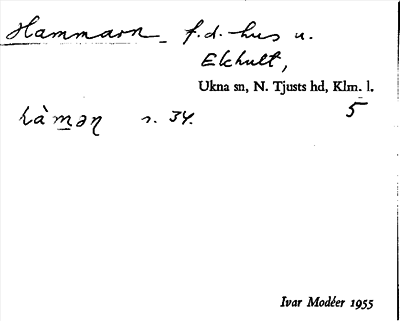 Hammarn f.d. hus u.
Ekhult,
Ukna sn, N. Tjusts hd, Klm. l.
5
hàmən s. 34.
Ivar Modéer 1955